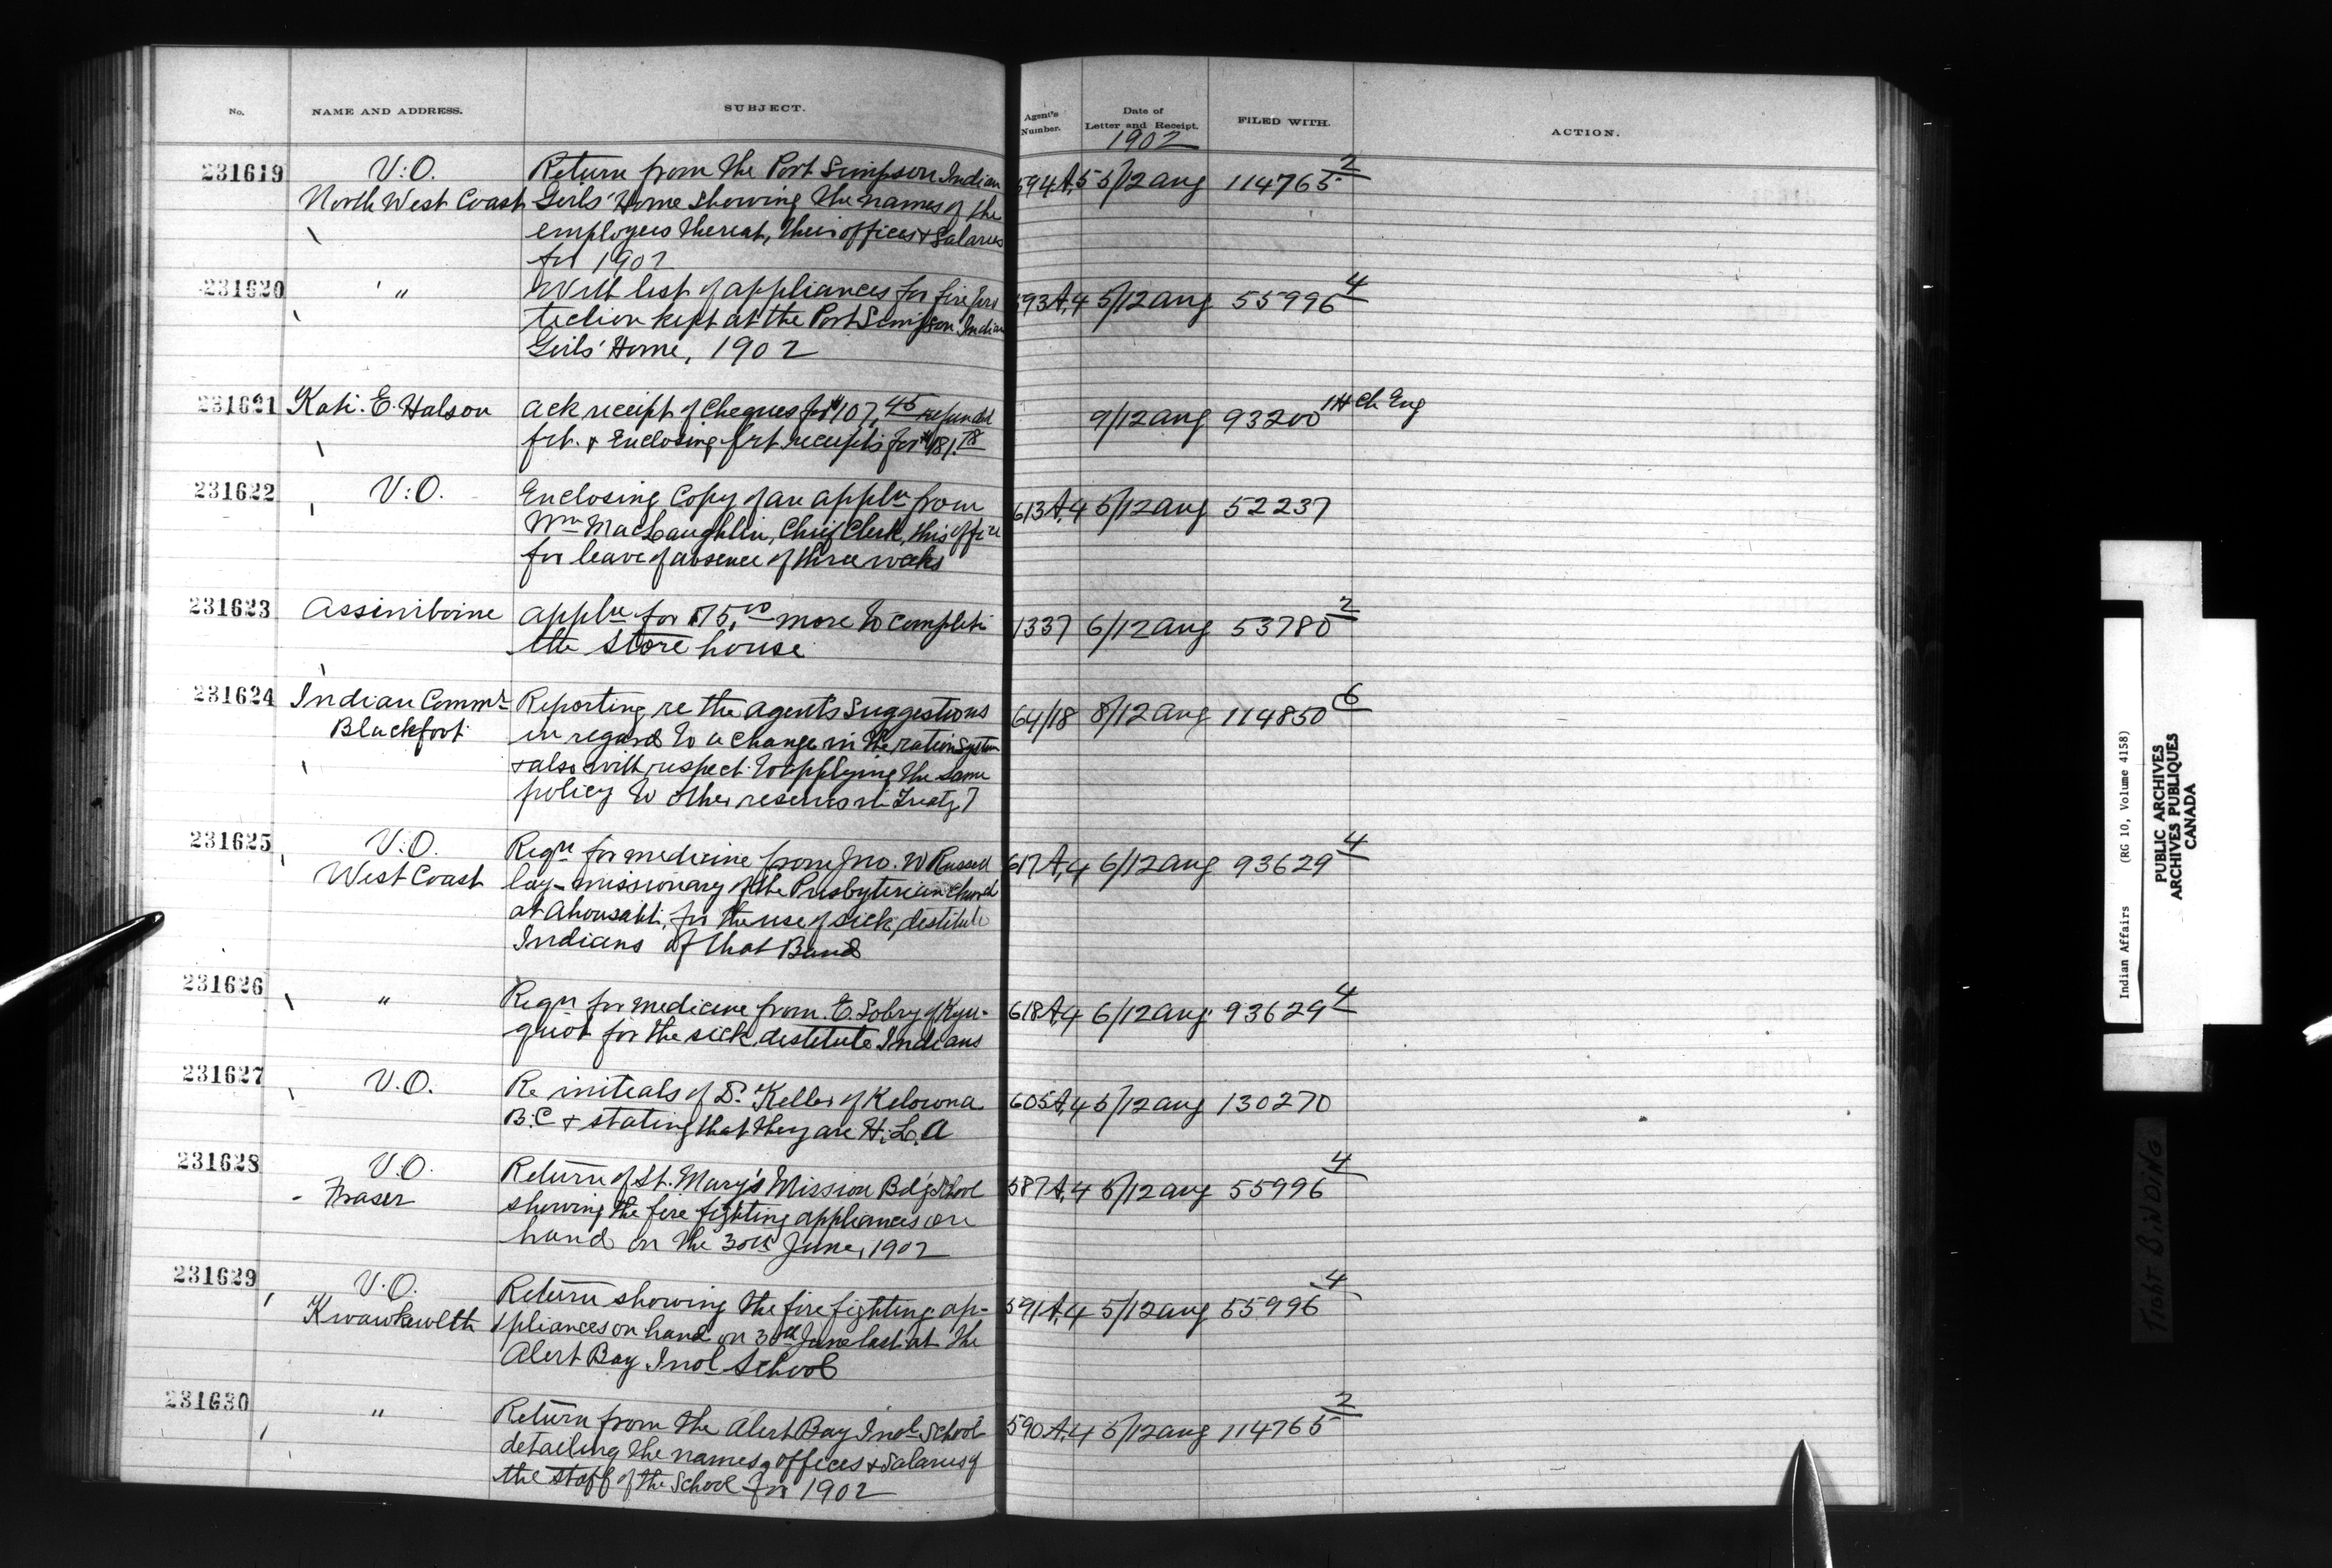 No. NAME AND ADDRESS. SUBJECT. Agent's Number. Date of Letter and Receipt. FILED WITH. ACTION.
1902
231619 V.O. Return from the Port Simpson Indian 594A,5 5/12 Aug 114765 2
North West Coast Girls' Home showing the names of the
employees thereat, their offices & salaries
for 1902
231620 " With list of appliances for fire pro 593A,4 5/12 Aug 55996 4
tection kept at the Port Simpson Indian
Girls' Home, 1902
231621 Kate E. Halson Ack receipt of cheques for $107.45 refunded 9/12 Aug 93200 1H Ch Eng
frt. & enclosing frt receipts for $181.78
231622 V.O. Enclosing copy of an appln from 613A,4 5/12 Aug 52237
Wm MacLaughlin, Chief Clerk, this office
for leave of absence of three weeks
231623 Assiniboine Appln for $75.00 more to complete 1337 6/12 Aug 53780 2
the store house
231624 Indian Commr Reporting re the agent's suggestions 64/18 8/12 Aug 114850 6
Blackfoot in regard to a change in the ration system
& also with respect to applying the same
policy to other reserves in Treaty 7
231625 V.O. Reqn for medicine from Jno. W Russell 617A,4 6/12 Aug 93629 4
West Coast lay-missionary of the Presbyterian Church
at Ahousaht, for the use of sick, destitute
Indians of that Band
231626 " Reqn for medicine from E. Sobry of Kyu- 618A,4 6/12 Aug 93629 4
quot for the sick, destitute Indians
231627 V.O. Re initials of Dr. Keller of Kelowna 605A,4 5/12 Aug 130270
B.C & stating that they are H. L. A
231628 V.O. Return of St. Mary's Mission Bdg School 587A,4 5/12 Aug 55996 4
Fraser showing the fire fighting appliances on
hand on the 30th June, 1902
231629 V.O. Return showing the fire fighting ap- 591A,4 5/12 Aug 55996 4
Kwawkewlth pliances on hand on 30th June last at the
Alert Bay Indl School
231630 " Return from the Alert Bay Indl School 590A,4 5/12 Aug 114765 2
detailing the names, offices & salaries of
the staff of the School for 1902
Indian Affairs (RG 10, Volume 4158)
PUBLIC ARCHIVES
ARCHIVES PUBLIQUES
CANADA
TIGHT BINDING